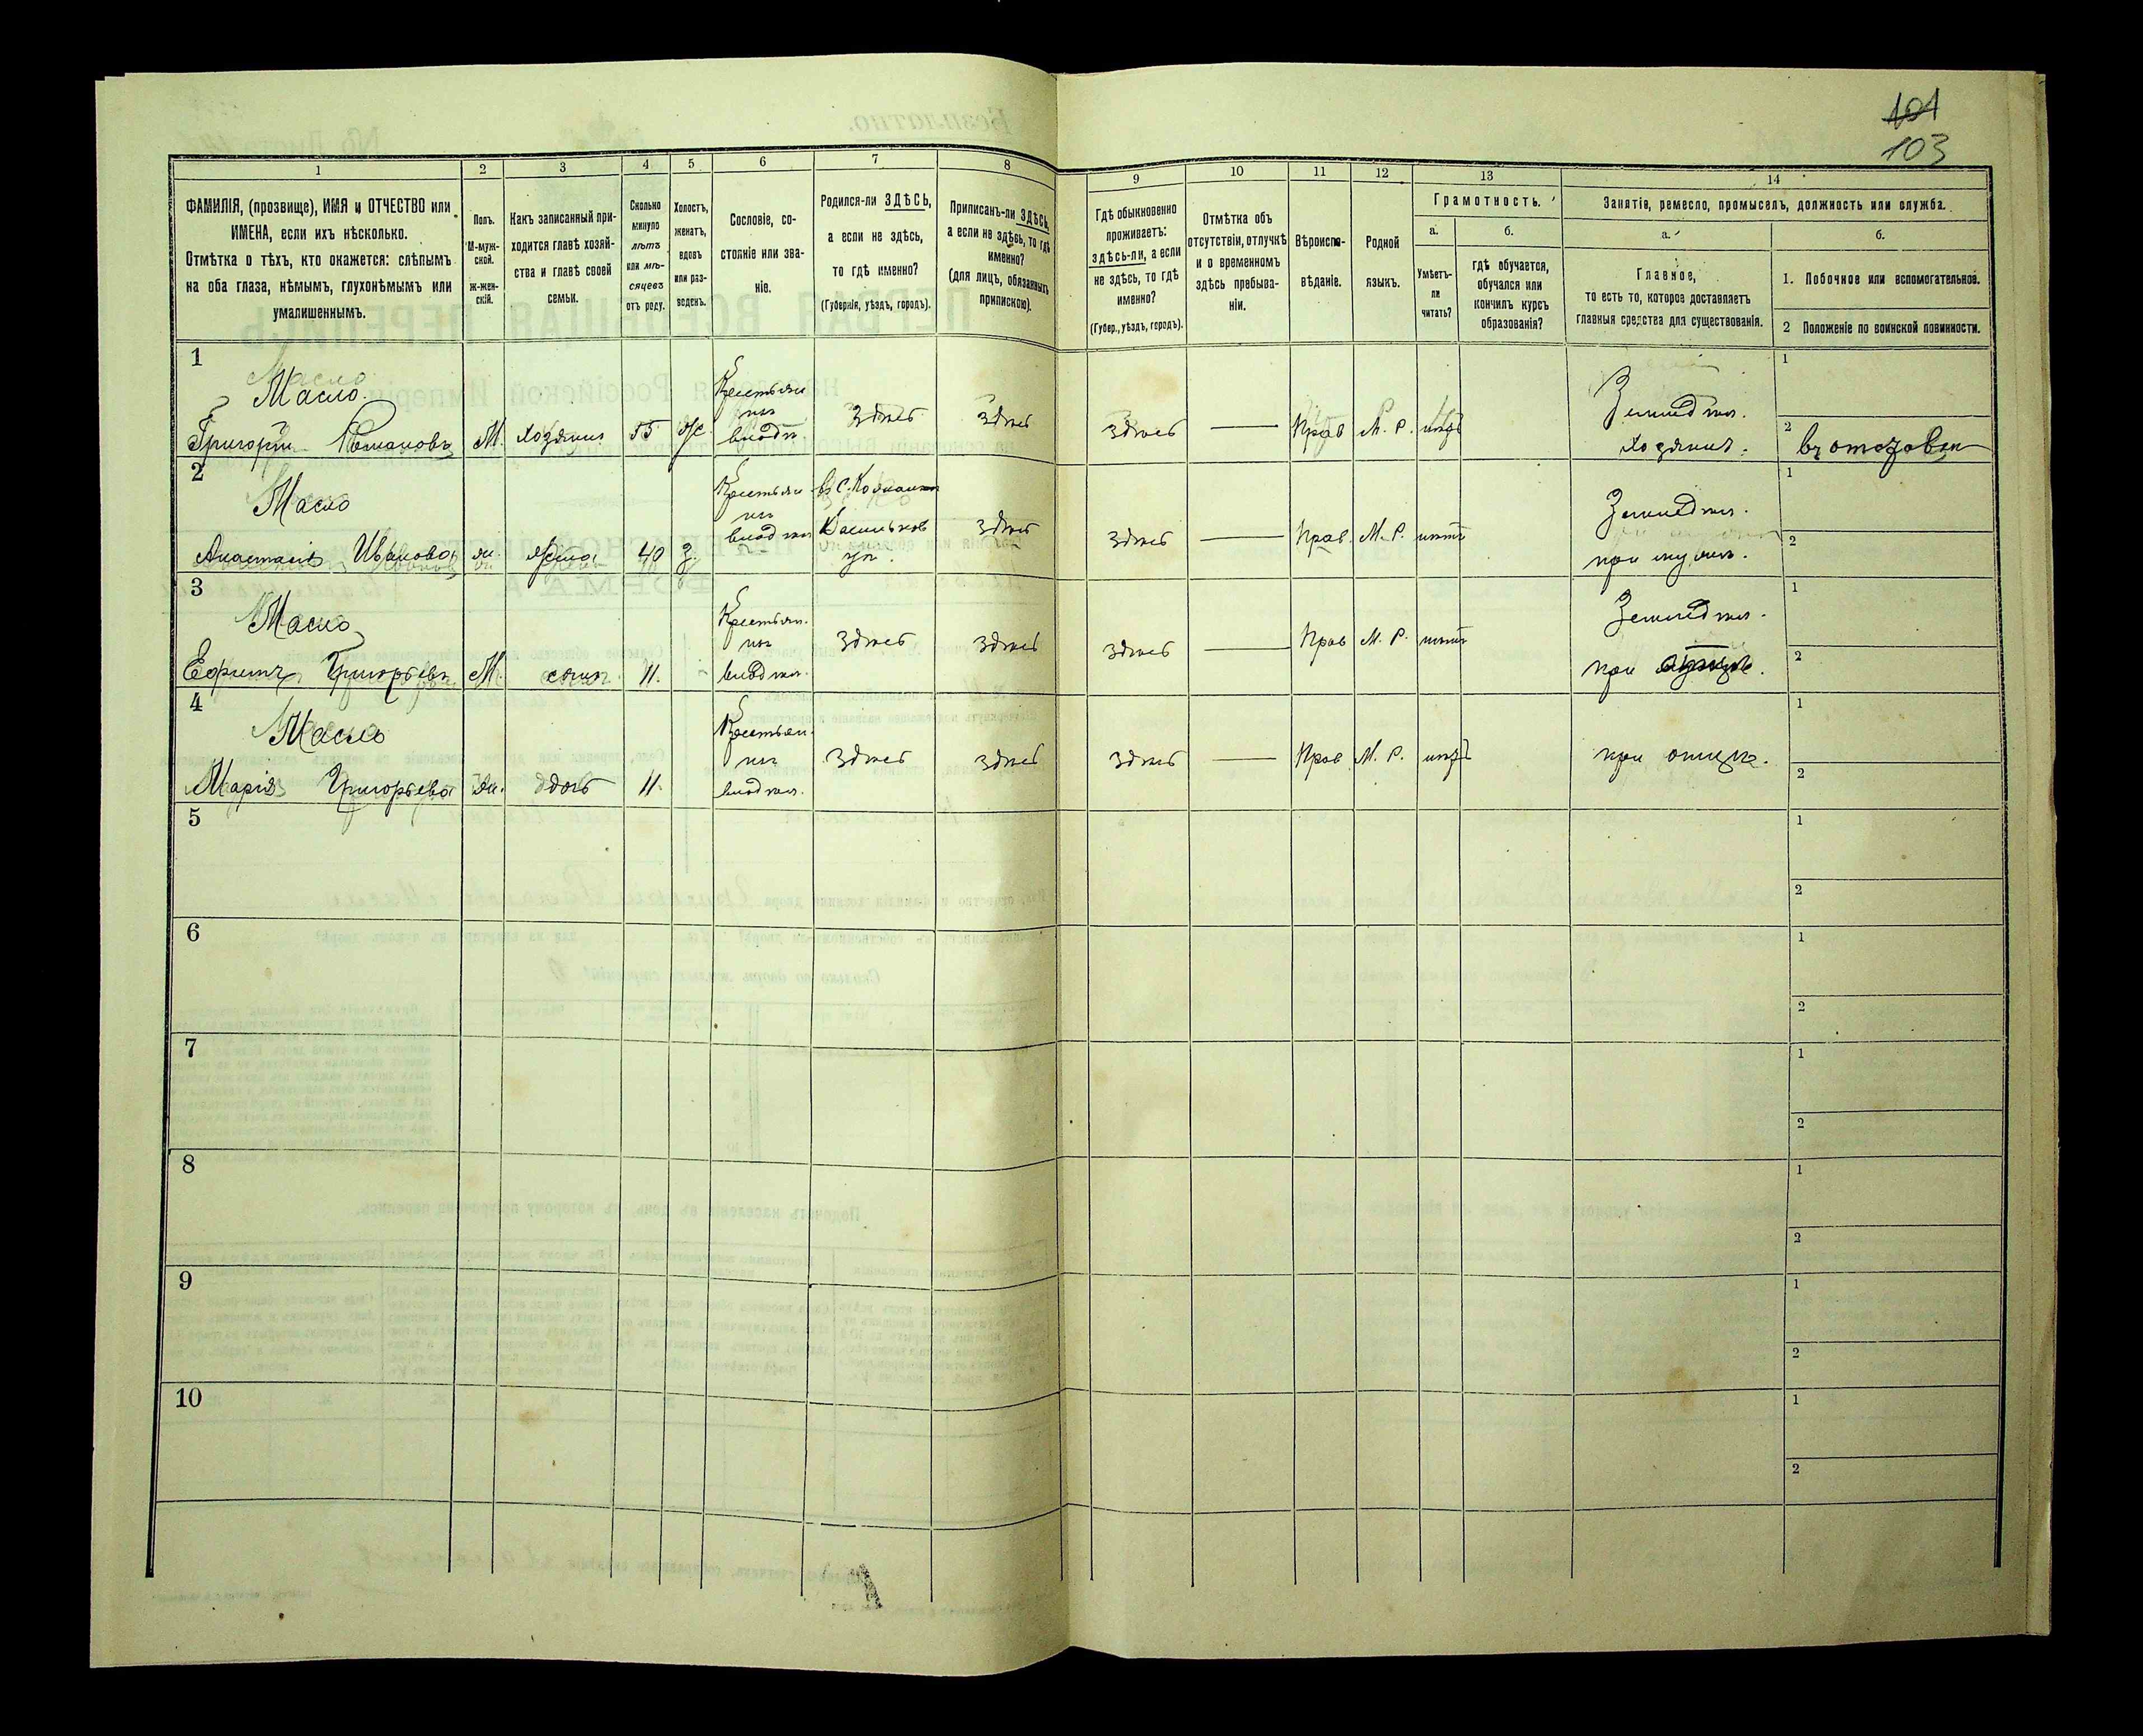 101
103
1
2
3
4
5
6
7
8
9
10
11
12
13
14
ФАМИЛІЯ, (прозвище), ИМЯ и ОТЧЕСТВО или
ИМЕНА, если ихъ нѣсколько.
Отмѣтка о тѣхъ, кто окажется: слѣпымъ
на оба глаза, нѣмымъ, глухонѣмымъ или
умалишеннымъ.
Полъ.
М-муж-
ской.
ж-жен-
скій.
Какъ записанный при-
ходится главѣ хозяй-
ства и главѣ своей
семьи.
Сколько
минуло
лѣтъ
или мѣ-
сяцевъ
отъ роду.
Холостъ,
женатъ,
вдовъ
или раз-
веденъ.
Сословіе, со-
стояніе или зва-
ніе.
Родился-ли ЗДѢСЬ,
а если не здѣсь,
то гдѣ именно?
(Губернія, уѣздъ, городъ).
Приписанъ-ли ЗДѢСЬ,
а если не здѣсь, то гдѣ
именно?
(для лицъ, обязанныхъ
припискою).
Гдѣ обыкновенно
проживаетъ:
здѣсь-ли, а если
не здѣсь, то гдѣ
именно?
(Губер., уѣздъ, городъ).
Отмѣтка объ
отсутствіи, отлучкѣ
и о временномъ
здѣсь пребыва-
ніи.
Вѣроиспо-
вѣданіе.
Родной
языкъ.
Грамотность.
а.
Умѣетъ-
ли
читать?
б.
гдѣ обучается,
обучался или
кончилъ курсъ
образованія?
Занятіе, ремесло, промыселъ, должность или служба.
а.
Главное,
то есть то, которое доставляетъ
главныя средства для существованія.
б.
1. Побочное или вспомогательное.
2 Положеніе по воинской повинности.
1
Масло
Григорій Романовъ
М.
хозяинъ
55
ж.
Крестьян
изъ
владѣл
здѣсь
здѣсь
здѣсь
Прав
М. Р.
нѣтъ
Земледѣл.
хозяинъ.
1
2
2
Масло
Анастасія Иванова
ж.
жена
40
з.
Крестьян
изъ
владѣл
въ С.
Васильков
уѣ.
здѣсь
здѣсь
Прав.
М. Р.
нѣтъ
Земледѣл.
при мужѣ.
1
2
3
Масло
Ефимъ Григорьевъ
М.
сынъ
11.
-
Крестьян.
изъ
владѣл.
здѣсь
здѣсь
здѣсь
Прав
М. Р.
нѣтъ
Земледѣл.
при отцѣ.
1
2
4
Масло
Марія Григорьева
ж.
дочь
11.
Крестьян.
изъ
владѣл.
здѣсь
здѣсь
здѣсь
Прав
М. Р.
нѣтъ
при отцѣ.
1
2
5
1
2
6
1
2
7
1
2
8
1
2
9
1
2
10
1
2